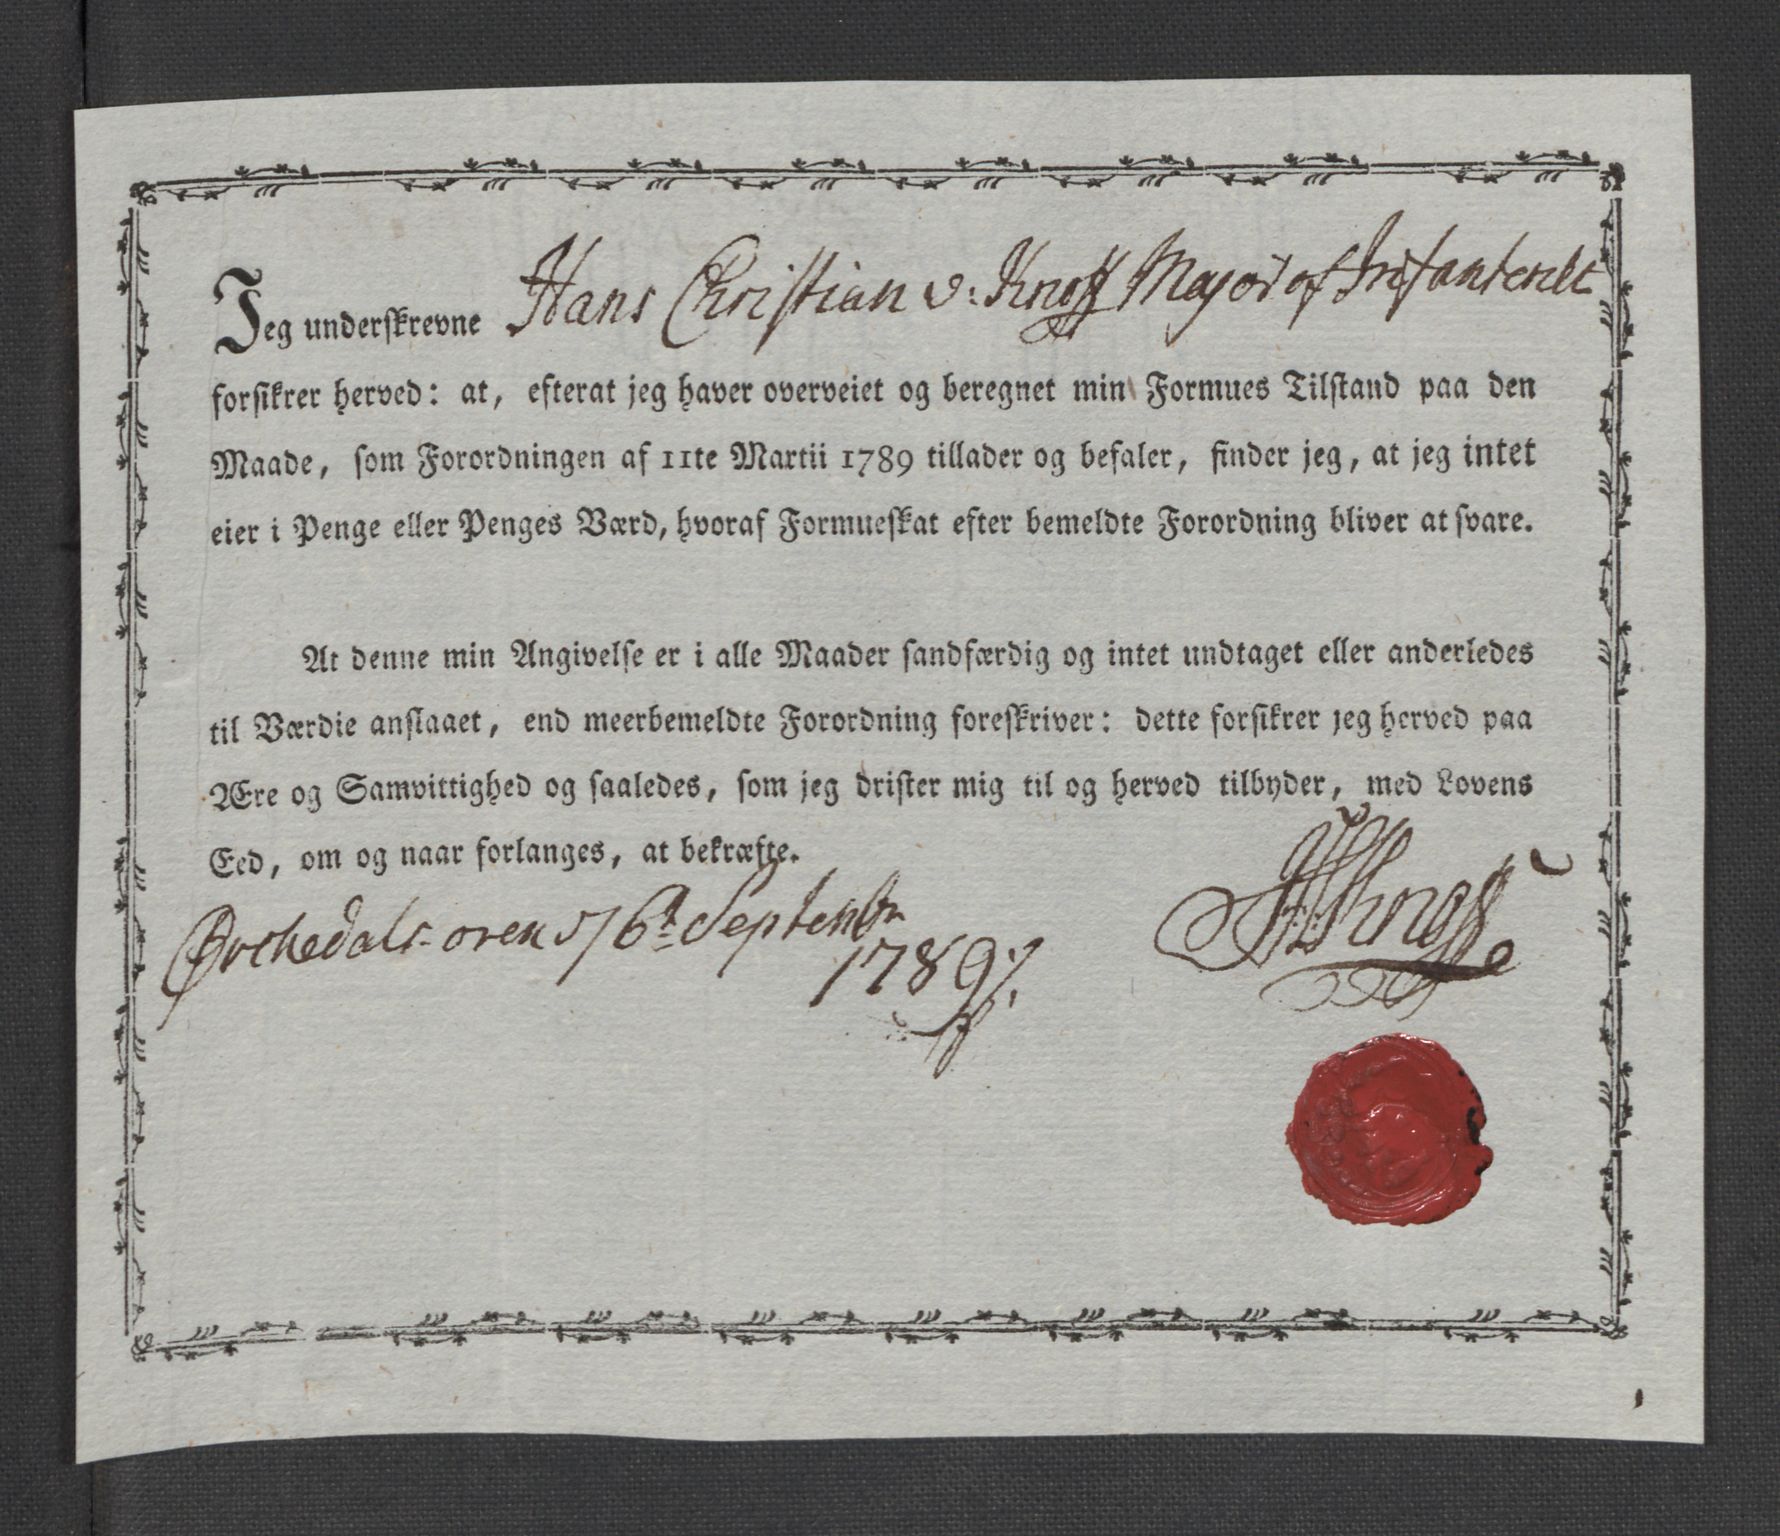 Jeg underskrevne Hans Christian v: Knoff Major af Infanteriet
forsikrer herved: at, efterat jeg haver overveiet og beregnet min Formues Tilstand paa den
Maade, som Forordningen af 11te Martii 1789 tillader og befaler, finder jeg, at jeg intet
eier i Penge eller Penges Værd, hvoraf Formueskat efter bemeldte Forordning bliver at svare.
At denne min Angivelse er i alle Maader sandfærdig og intet undtaget eller anderledes
til Værdie anslaaet, end meerbemeldte Forordning foreskriver: dette forsikrer jeg herved paa
Ære og Samvittighed og saaledes, som jeg drister mig til og herved tilbyder, med Lovens
Eed, om og naar forlanges, at bekræfte.
Ørchedals-øren Septembr
1789
HCKnoff